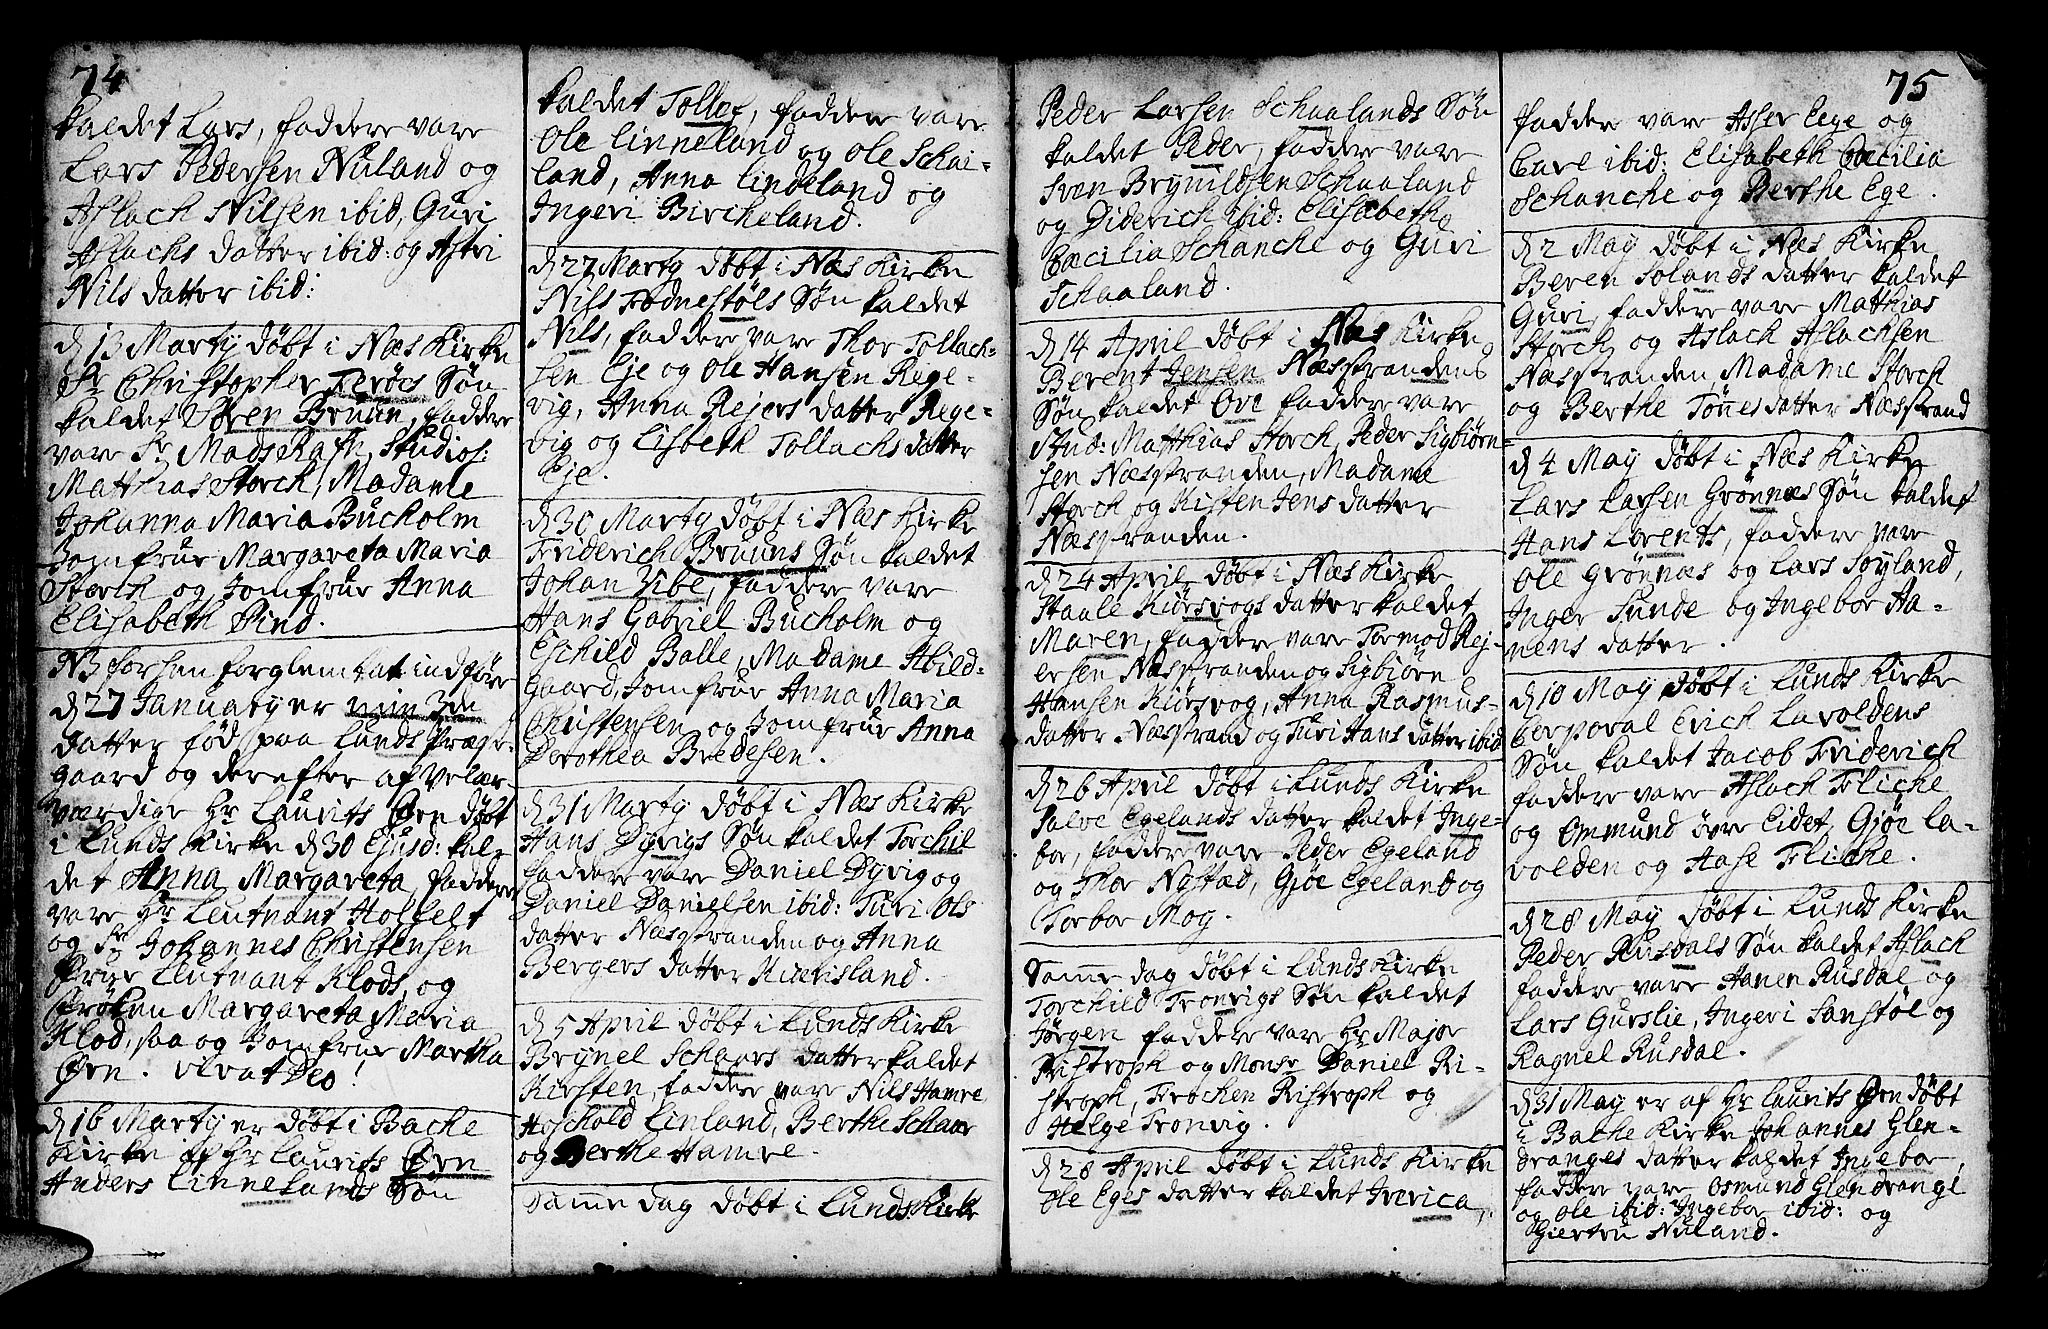 74
kaldet Lars, faddere vare
Lars Pedersen Nuland og
Aslach Nilsen ibid, Guri
Aslachs datter ibid: og Astri
Nils datter ibid:
d 13 Marty døbt i Næs Kirke
Sr Christopher Ferøes Søn
kaldet Søren Bruun, faddere
vare Sr Mads Rafn, Studios:
Matthias Storch, Madame
Johanna Maria Bucholm
Jomfrue Margareta Maria
Storch og Jomfrue Anna
Elisabeth Pind.
NB forhen forglemt at indføre
d 27 January er min 3de
datter fød paa Lunds Præste-
gaard og derefter af Velær-
værdige Hr Laurits Ørn døbt
i Lunds Kirke d 30 Ejusd: kal-
det Anna Margareta, faddere
vare Hr Leutnant Holfelt
og Sr Johannes Christensen
Frue Leutnant Klods, og
Frøken Margareta Maria
Klod, saa og Jomfrue Martha
Ørn. Vivat Deo!
d 16 Marty er døbt i Bache
Kirke af Hr Laurits Ørn
Anders Linnelands Søn
kaldet Tollef, faddere vare
Ole Linneland og Ole Schai-
land, Anna Lindeland og
Ingeri Bircheland.
d 27 Marty døbt i Næs Kirke
Niss Fodnestøls Søn kaldet
Nils, faddere vare Thor Tollach-
sen Eje og Ole Hansen Rege-
vig, Anna Rejers datter Rege-
vig og Lisbeth Tollachs datter
Eje.
d 30 Marty døbt i Næs Kirke
Friderich Bruuns Søn kaldet
Johan Vibe, faddere vare
Hans Gabriel Bucholm og
Eschild Balle, Madame Abild-
gaard, Jomfrue Anna Maria
Christensen og Jomfrue Anna
Dorothea Bredesen.
d 31 Marty døbt i Næs Kirke
Hans Dyvigs Søn kaldet Torchil
faddere vare Daniel Dyvig og
Daniel Danielsen ibid: Turi Ols
datter Næsstranden og Anna
Bergers datter Kiærisland.
d 5 April døbt i Lunds Kirke
Brynel Schaars datter kaldet
Kirsten, faddere vare Nils Hamre
Hoschold Linland, Berthe Schaar
og Berthe Hamre.
Samme dag døbt i Lunds Kirke
Peder Larsen Schaalands Søn
kaldet Peder, faddere vare
Sven Brynildsen Schaaland
og Diderich ibid: Elisabeth
Cæcilia Schanche og Guri
Schaaland.
d 14 April døbt i Næs Kirke
Berent Jensen Næsstrandens
Søn kaldet Ove faddere vare
Stud: Matthias Storch, Peder Sigbiørn-
sen Næsstranden, Madame
Storch og Kisten Jens datter
Næsstranden.
d 24 April døbt i Næs Kirke
Staale Kiørsvogs datter kaldet
Maren, faddere vare Tormod Rej-
ersen Næsstranden og Sigbiørn
Hansen Kiørsvog, Anna Rasmus-
datter Næsstrand og Turi Hans datter ibid
d 26 April døbt i Lunds Kirke
Salve Egelands datter kaldet Inge-
bor, faddere vare Peder Egeland
og Thor Nystæd, Gjøe Egeland og
Torbor Mog.
Samme dag døbt i Lunds Kirke
Torchild Tronvigs Søn kaldet
Jørgen faddere vare Hr Major
Ristroph og Monsr Daniel Ri-
stroph, Frøchen Ristroph og
Helge Tronvig.
d 28 April døbt i Lunds Kirke
Ole Eges datter kaldet Iverica,
75
faddere vare Asser Eege og
Carl ibid: Elisabeth Cæcilia
Schanche og Berthe Ege.
d 2 May døbt i Næs Kirke
Beren Solands datter kaldet
Guri, faddere vare Matthias
Storch og Aslach Aslachsen
Næsstranden, Madame Storch
og Berthe Tønes datter Næsstrand
d 4 May døbt i Næs Kirke
Lars Larsen Grønnæs Søn kaldet
Hans Lorents, faddere vare
Ole Grønnæs og Lars Søyland,
Inger Sunde og Ingebor Ha-
nens datter.
d 10 May døbt i Lunds Kirke
Corporal Erich Lavoldens
Søn kaldet Jacob Friderich
faddere vare Aslach Fliche
og Omund øvre Eidet, Gjøe La-
volden og Aase Fliche.
d 28 May døbt i Lunds Kirke
Peder Rusdals Søn kaldet Aslach
faddere vare Hanen Rusdal og
Lars Gurslie, Ingeri Sanstøl og
Ragnel Rusdal.
d 31 May er af Hr Laurits Ørn døbt
i Bache Kirke Johannes Glen-
dranges datter kaldet Ingebor,
faddere vare Osmund Glendrange
og Ole ibid: Ingebor ibid: og
Giertru Nuland.